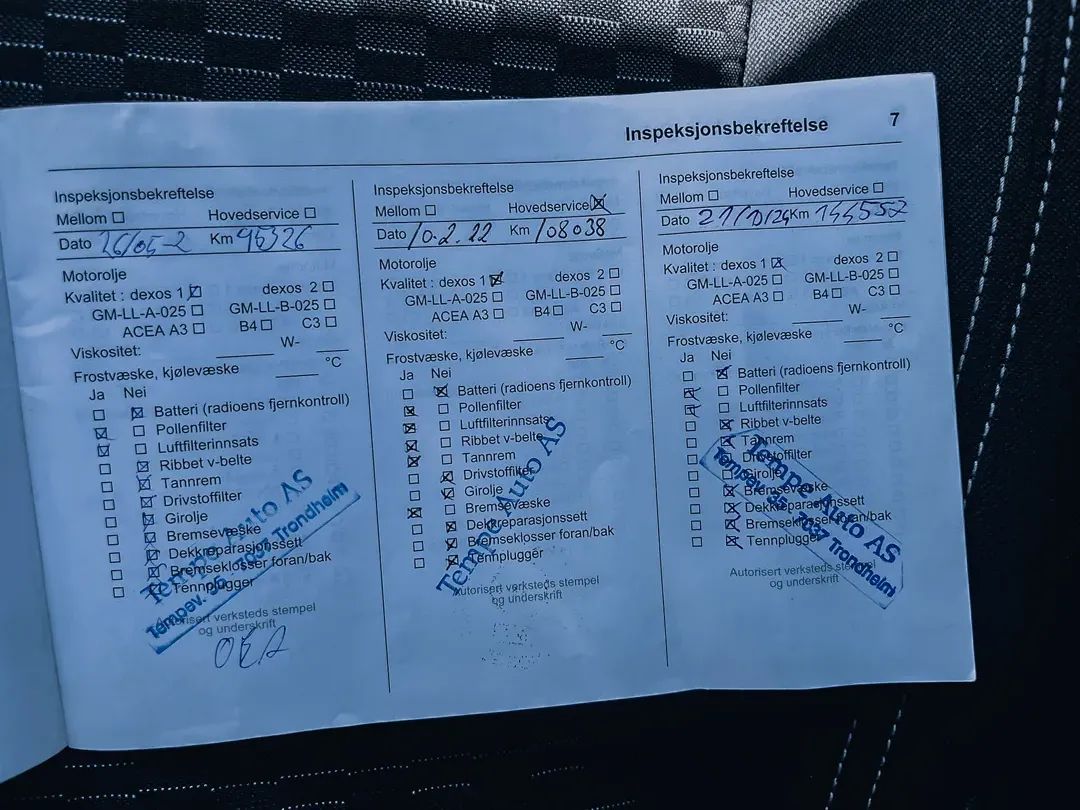 Inspeksjonsbekreftelse 7
Inspeksjonsbekreftelse
Mellom ☐ Hovedservice ☐
Dato 26/05-2 Km 95326
Motorolje
Kvalitet : dexos 1 ☑ dexos 2 ☐
GM-LL-A-025 ☐ GM-LL-B-025 ☐
ACEA A3 ☐ B4 ☐ C3 ☐
Viskositet: ____ W- ____
Frostvæske, kjølevæske ____ °C
Ja Nei
☐ ☒ Batteri (radioens fjernkontroll)
☒ ☐ Pollenfilter
☒ ☐ Luftfilterinnsats
☐ ☒ Ribbet v-belte
☐ ☒ Tannrem
☐ ☒ Drivstoffilter
☐ ☒ Girolje
☐ ☒ Bremsevæske
☐ ☒ Dekkreparasjonssett
☐ ☒ Bremseklosser foran/bak
☐ ☒ Tennplugger
Tempe Auto AS
Tempev. 35, 7037 Trondheim
Autorisert verksteds stempel
og underskrift
Inspeksjonsbekreftelse
Mellom ☐ Hovedservice ☒
Dato 10.2.22 Km 108038
Motorolje
Kvalitet : dexos 1 ☒ dexos 2 ☐
GM-LL-A-025 ☐ GM-LL-B-025 ☐
ACEA A3 ☐ B4 ☐ C3 ☐
Viskositet: ____ W- ____
Frostvæske, kjølevæske ____ °C
Ja Nei
☐ ☒ Batteri (radioens fjernkontroll)
☒ ☐ Pollenfilter
☒ ☐ Luftfilterinnsats
☒ ☐ Ribbet v-belte
☒ ☐ Tannrem
☐ ☒ Drivstoffilter
☐ ☒ Girolje
☒ ☐ Bremsevæske
☐ ☒ Dekkreparasjonssett
☐ ☒ Bremseklosser foran/bak
☐ ☒ Tennplugger
Tempe Auto AS
Autorisert verksteds stempel
og underskrift
Inspeksjonsbekreftelse
Mellom ☐ Hovedservice ☐
Dato 21/10/24 Km 144552
Motorolje
Kvalitet : dexos 1 ☒ dexos 2 ☐
GM-LL-A-025 ☐ GM-LL-B-025 ☐
ACEA A3 ☐ B4 ☐ C3 ☐
Viskositet: ____ W- ____
Frostvæske, kjølevæske ____ °C
Ja Nei
☐ ☒ Batteri (radioens fjernkontroll)
☒ ☐ Pollenfilter
☒ ☐ Luftfilterinnsats
☐ ☒ Ribbet v-belte
☐ ☒ Tannrem
☐ ☐ Drivstoffilter
☐ ☐ Girolje
☐ ☒ Bremsevæske
☐ ☒ Dekkreparasjonssett
☐ ☒ Bremseklosser foran/bak
☐ ☒ Tennplugger
Tempe Auto AS
Tempev. 35, 7037 Trondheim
Autorisert verksteds stempel
og underskrift